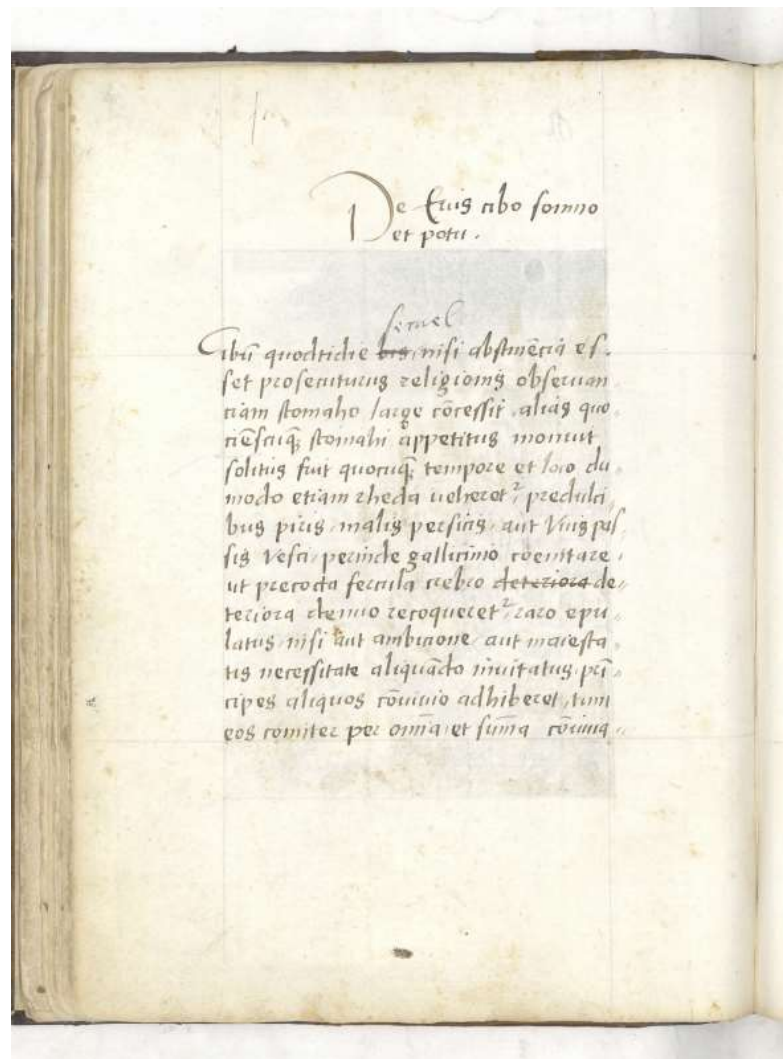 De Euis cibo somno
et potu.
semel
Cibū quodtidie bis, nisi abstinēciā es-
set prosecuturus religionis obseruan
tiam stomaho large cōcessit, alias quo
ciēscuq; stomahi appetitus monuit
solitus fuit quocuq; tempore et loco du
modo etiam rheda ueheret², predulci
bus piris, malis persicis, aut Vuis pas-
sis vesci, perinde gallicinio coenitare,
ut precocta fercula crebro deteriora de-
teriora denuo recoqueret², raro epu
latus, nisi aut ambicione, aut maiesta
tis necessitate aliquādo inuitatus, prī
cipes aliquos cōuiuio adhiberet, tum
eos comiter per omīa et sūma cōuiua